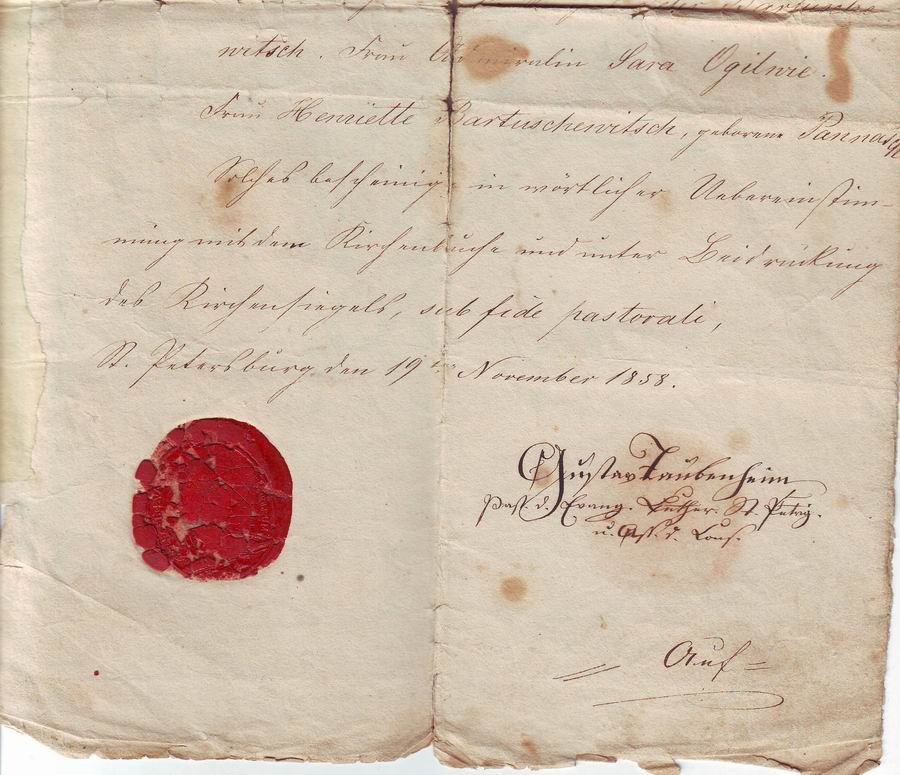 witsch. Frau Admiralin Sara Ogilwie.
Frau Henriette Bartuschewitsch, geborene Pannasch
Solches bescheinige in wörtlicher Uebereinstim-
mung mit dem Kirchenbuche und unter Beidrückung
des Kirchensiegels, sub fide pastorali,
St. Petersburg den 19ten November 1858.
Gustav Taubenheim
Past. d. Evang. Luther. St. Petrig.
u. Ass. d. Cons.